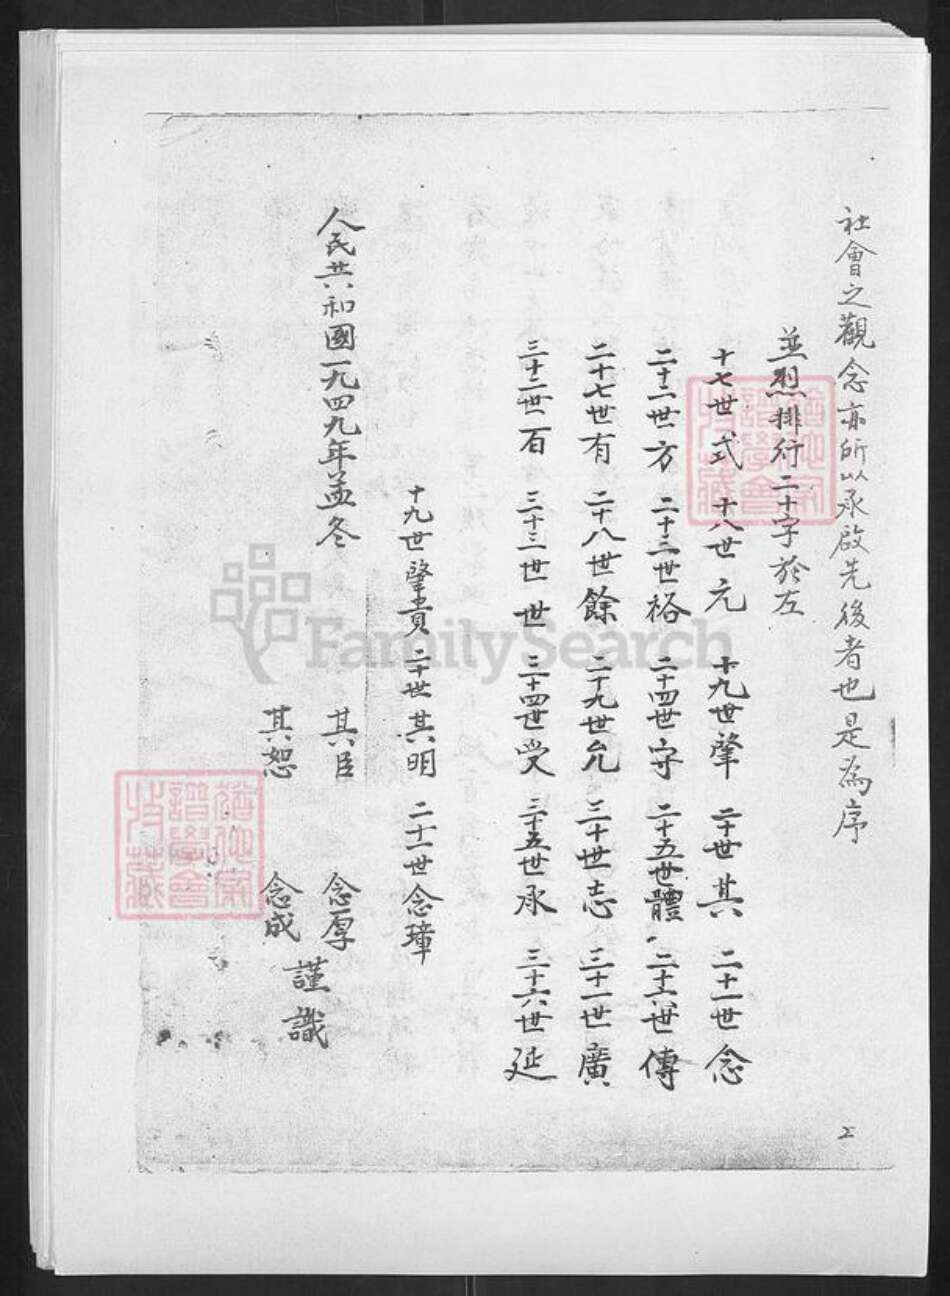 社會之觀念亦所以承啟先後者也是為序
並烈排行二十字於左
十七世式 十八世元 十九世肇 二十世其 二十一世念
二十二世方 二十三世裕 二十四世守 二十五世體 二十六世傳
二十七世有 二十八世餘 二十九世允 三十世志 三十一世廣
三十二世百 三十三世世 三十四世受 三十五世承 三十六世延
十九世肇貴 二十世其明 二十一世念璋
人民共和國一九四九年孟冬 其臣 念厚
其恕 念成
謹識
2
FamilySearch
譜學會
收藏
譜學會
收藏